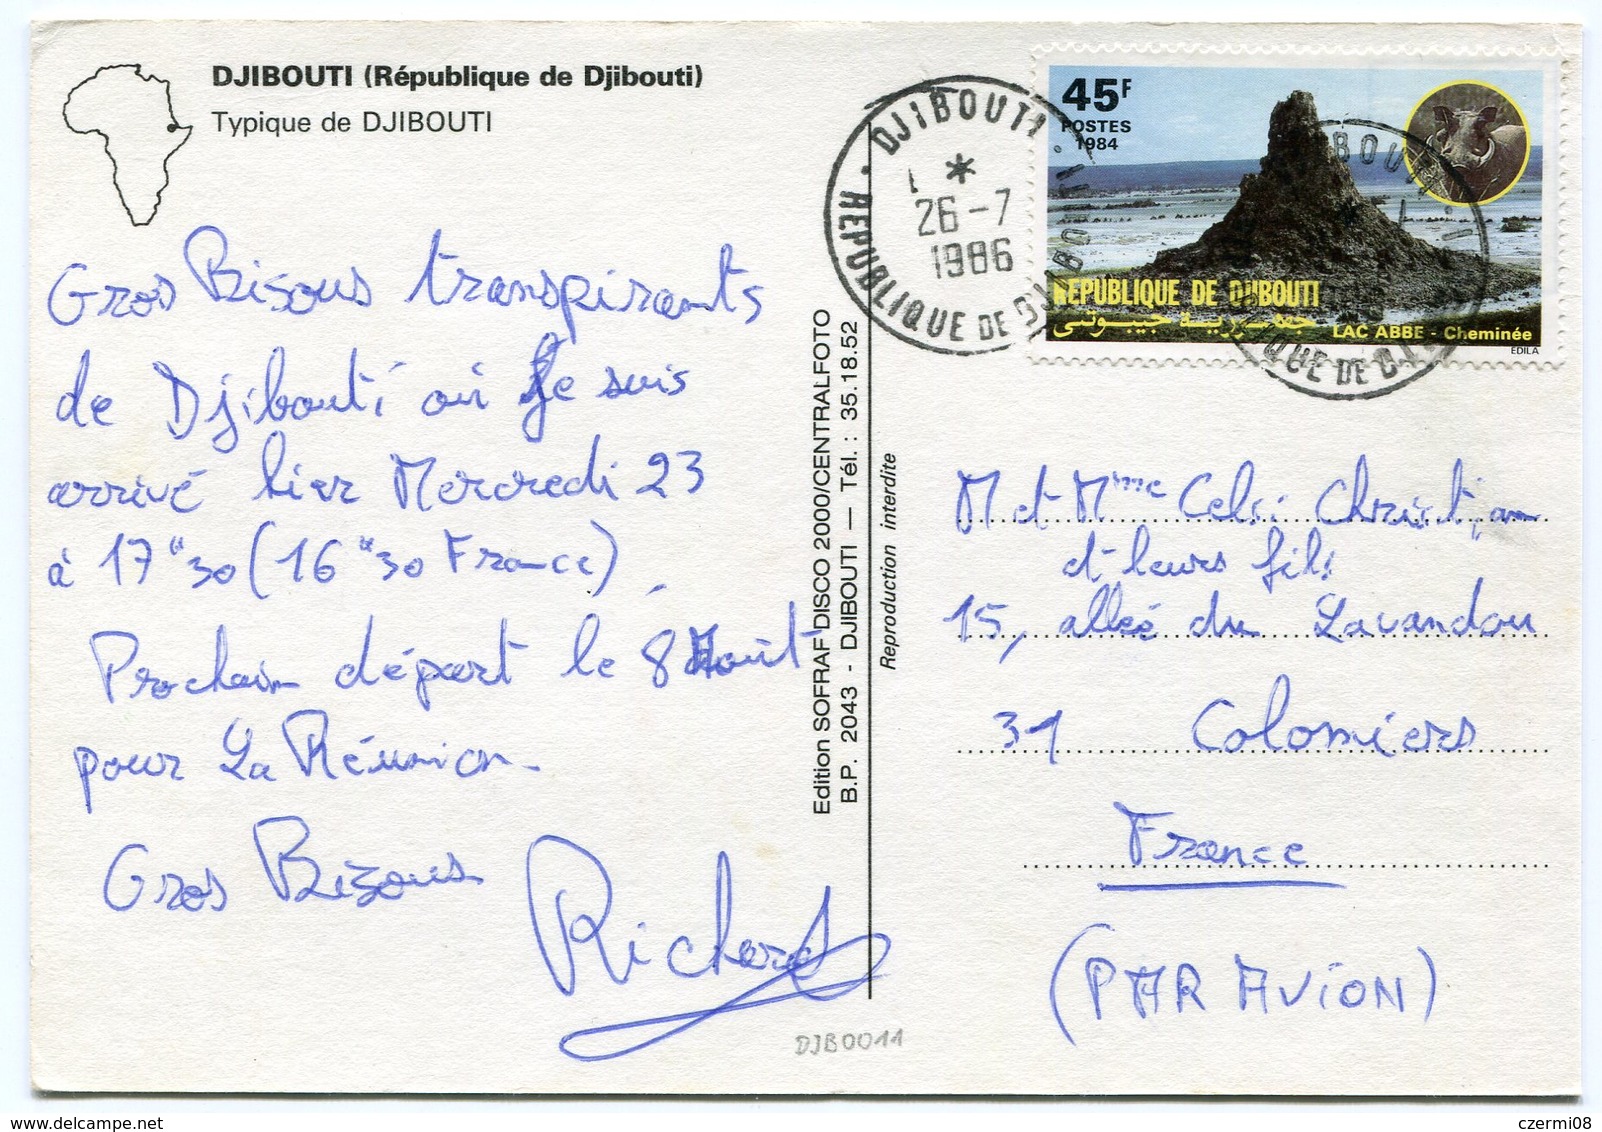 DJIBOUTI (République de Djibouti)
Typique de DJIBOUTI
Gros Bisous transpirants
de Djibouti où Je suis
arrivé hier Mercredi 23
à 17"30 (16"30 France).
Prochain départ le 8 Août
pour La Réunion.
Gros Bizous
Richard
DJB0011
Edition SOFRAF DISCO 2000/CENTRALFOTO
B.P. 2043 - DJIBOUTI — Tél. : 35.18.52
Reproduction interdite
DJIBOUTI
*
26-7
1986
REPUBLIQUE DE DJIBOUTI
45F
POSTES
1984
REPUBLIQUE DE DJIBOUTI
جمهورية جيبوتي
LAC ABBE - Cheminée
EDILA
M et Mme Christian
et leurs fils
15, allée du Lavandou
31 Colomiers
France
(PAR AVION)
czermi08